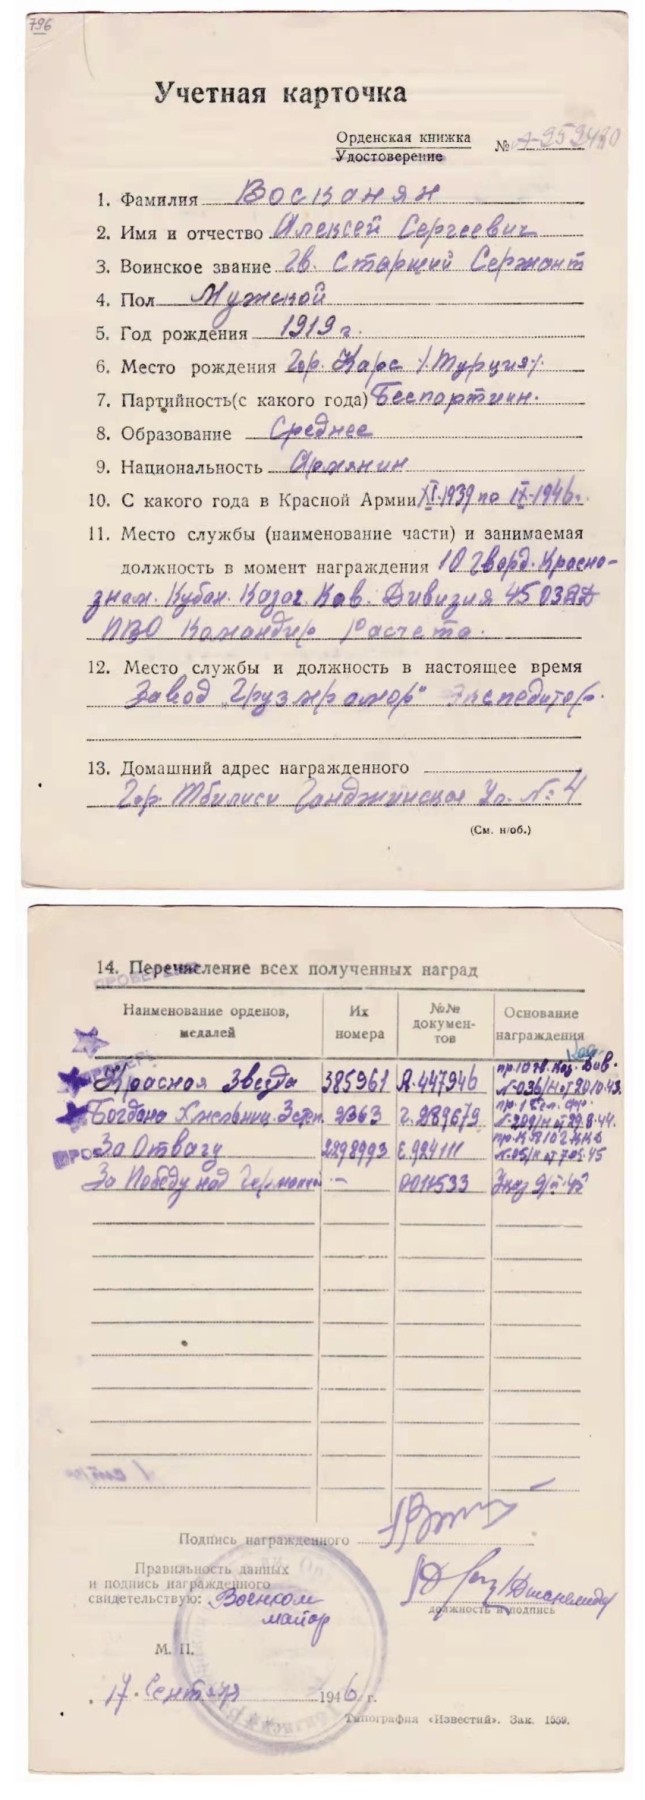 796
Учетная карточка
Орденская книжка
Удостоверение
№ А-959480
1. Фамилия Восканян
2. Имя и отчество Алексей Сергеевич
3. Воинское звание Гв. Старший Сержант
4. Пол Мужской
5. Год рождения 1919 г.
6. Место рождения Гор. Карс /Турция/.
7. Партийность(с какого года) Беспартийн.
8. Образование Среднее
9. Национальность Армянин
10. С какого года в Красной Армии XI-1939 по IX-1946 г.
11. Место службы (наименование части) и занимаемая
должность в момент награждения 10 Гвард. Красно-
знам. Кубан. Казач. Кав. Дивизия 45
ПВО Командир Расчета.
12. Место службы и должность в настоящее время
Завод „Грузмрамор" Экспедитор.
13. Домашний адрес награжденного
Гор. Тбилиси Ганджинская Ул. № 4
(См. н/об.)
14. Перечисление всех полученных наград
Наименование орденов, медалей
Их номера
№№ документов
Основание награждения
Красная Звезда 385961 А.447946 пр. 10 гв. Каз. Див. № 036/н от 20.10.43.
Богдана Хмельниц. 3 степ. 2363 г. 289679 № 209/н от 29.8.44.
За Отвагу 2898993 Е.924111 № 05/н от 7.05.45
За Победу над Германией — 0011533 Указ 9/V-45
Подпись награжденного
Правильность данных
и подпись награжденного
свидетельствую: Военком
майор
должность и подпись
М. П.
17. Сентября 1946 г.
Типография «Известий». Зак. 1559.